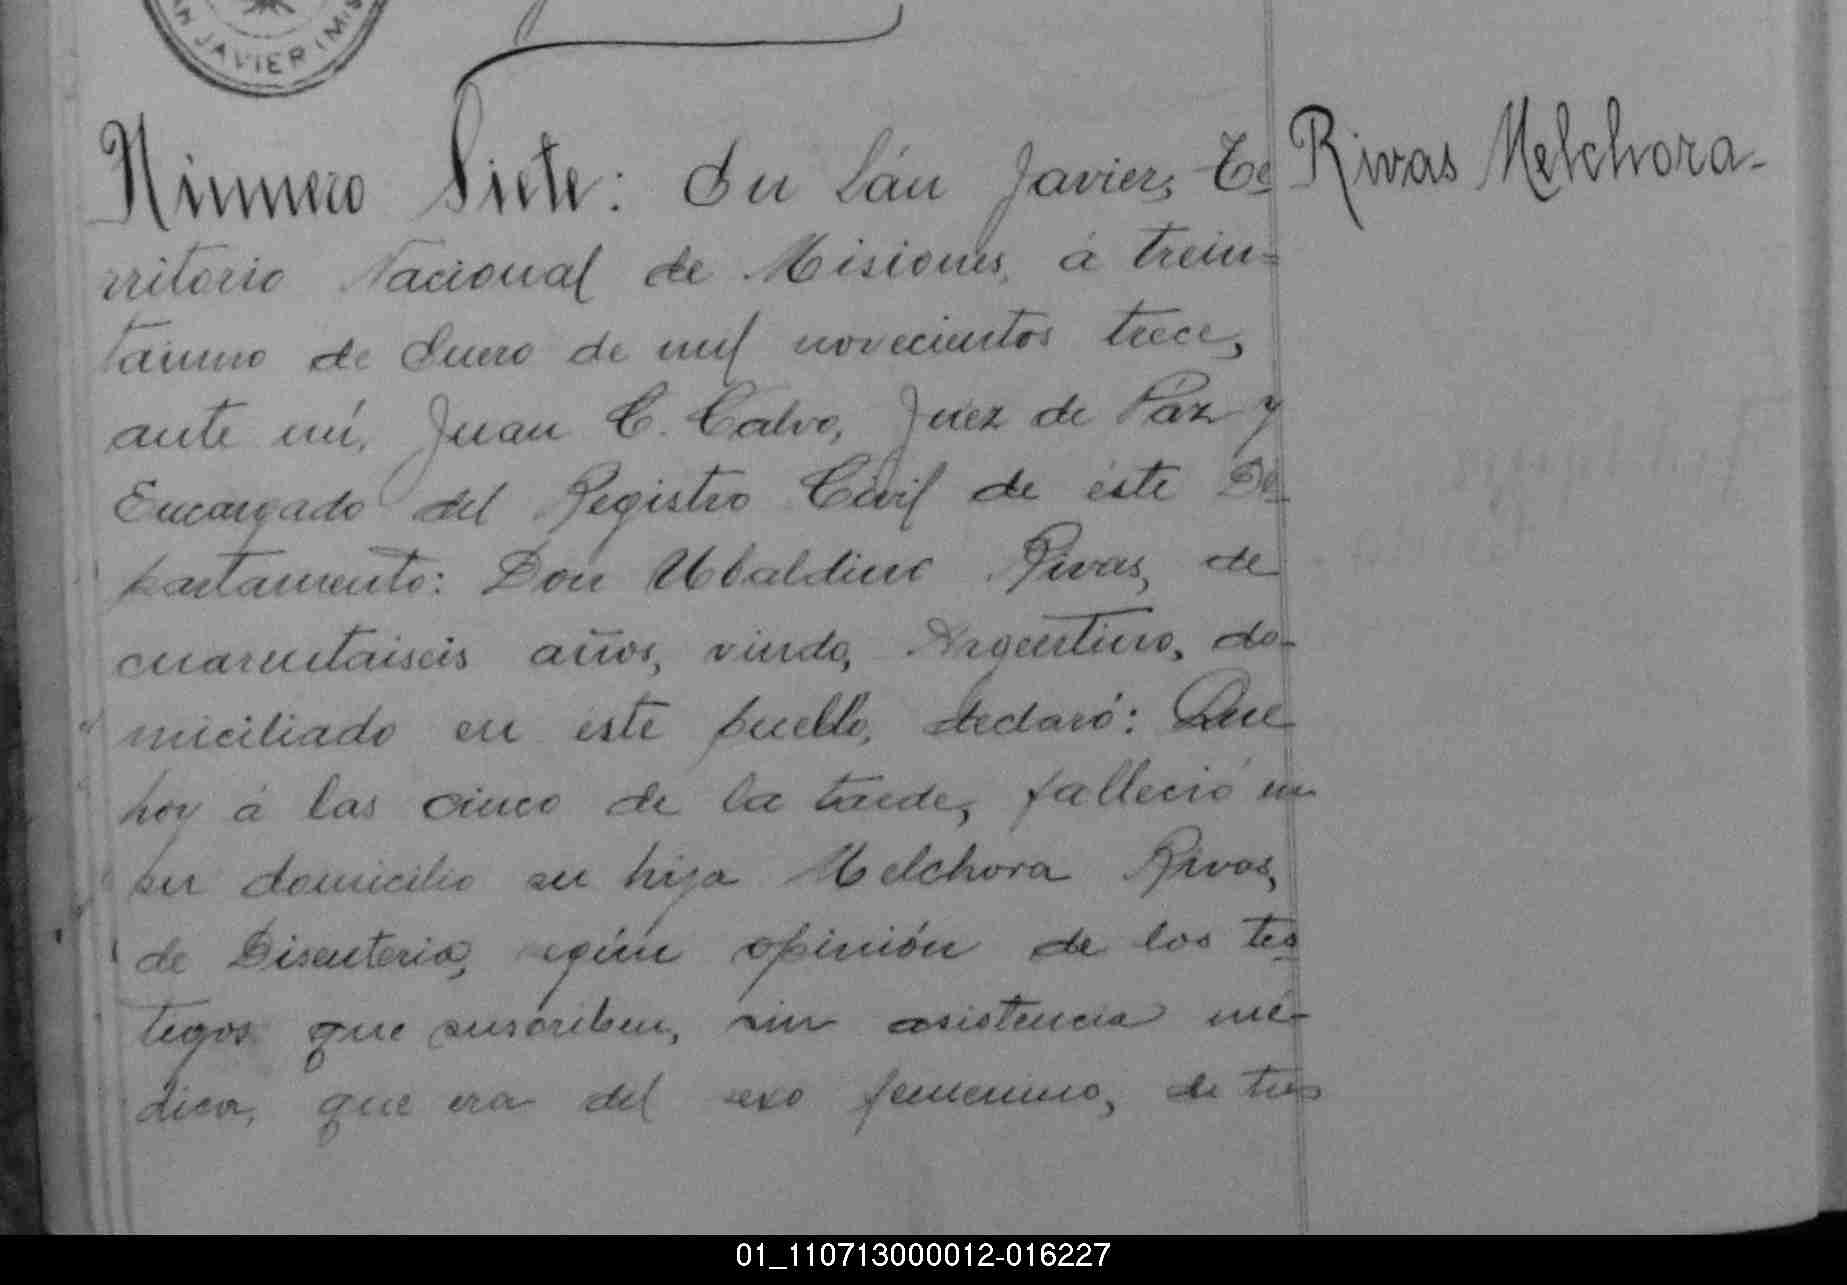 AN JAVIER (MIS
Número Siete: En Sán Javier, Te
Rivas Melchora-
rritorio Nacional de Misiones, á trein-
taiuno de Enero de mil novecientos trece,
ante mí, Juan C. Calvo, Juez de Páz y
Encargado del Registro Civil de éste De-
partamento: Don Ubaldino Rivas, de
cuarentaiseis años, viudo, Argentino, do-
miciliado en éste pueblo, declaró: Que
hoy á las cinco de la tarde, falleció en
su domicilio su hija Melchora Rivas,
de Disenteria, según opinión de los tes
tigos que suscriben, sin asistencia mé-
dica, que era del sexo femenino, de tres
01_110713000012-016227